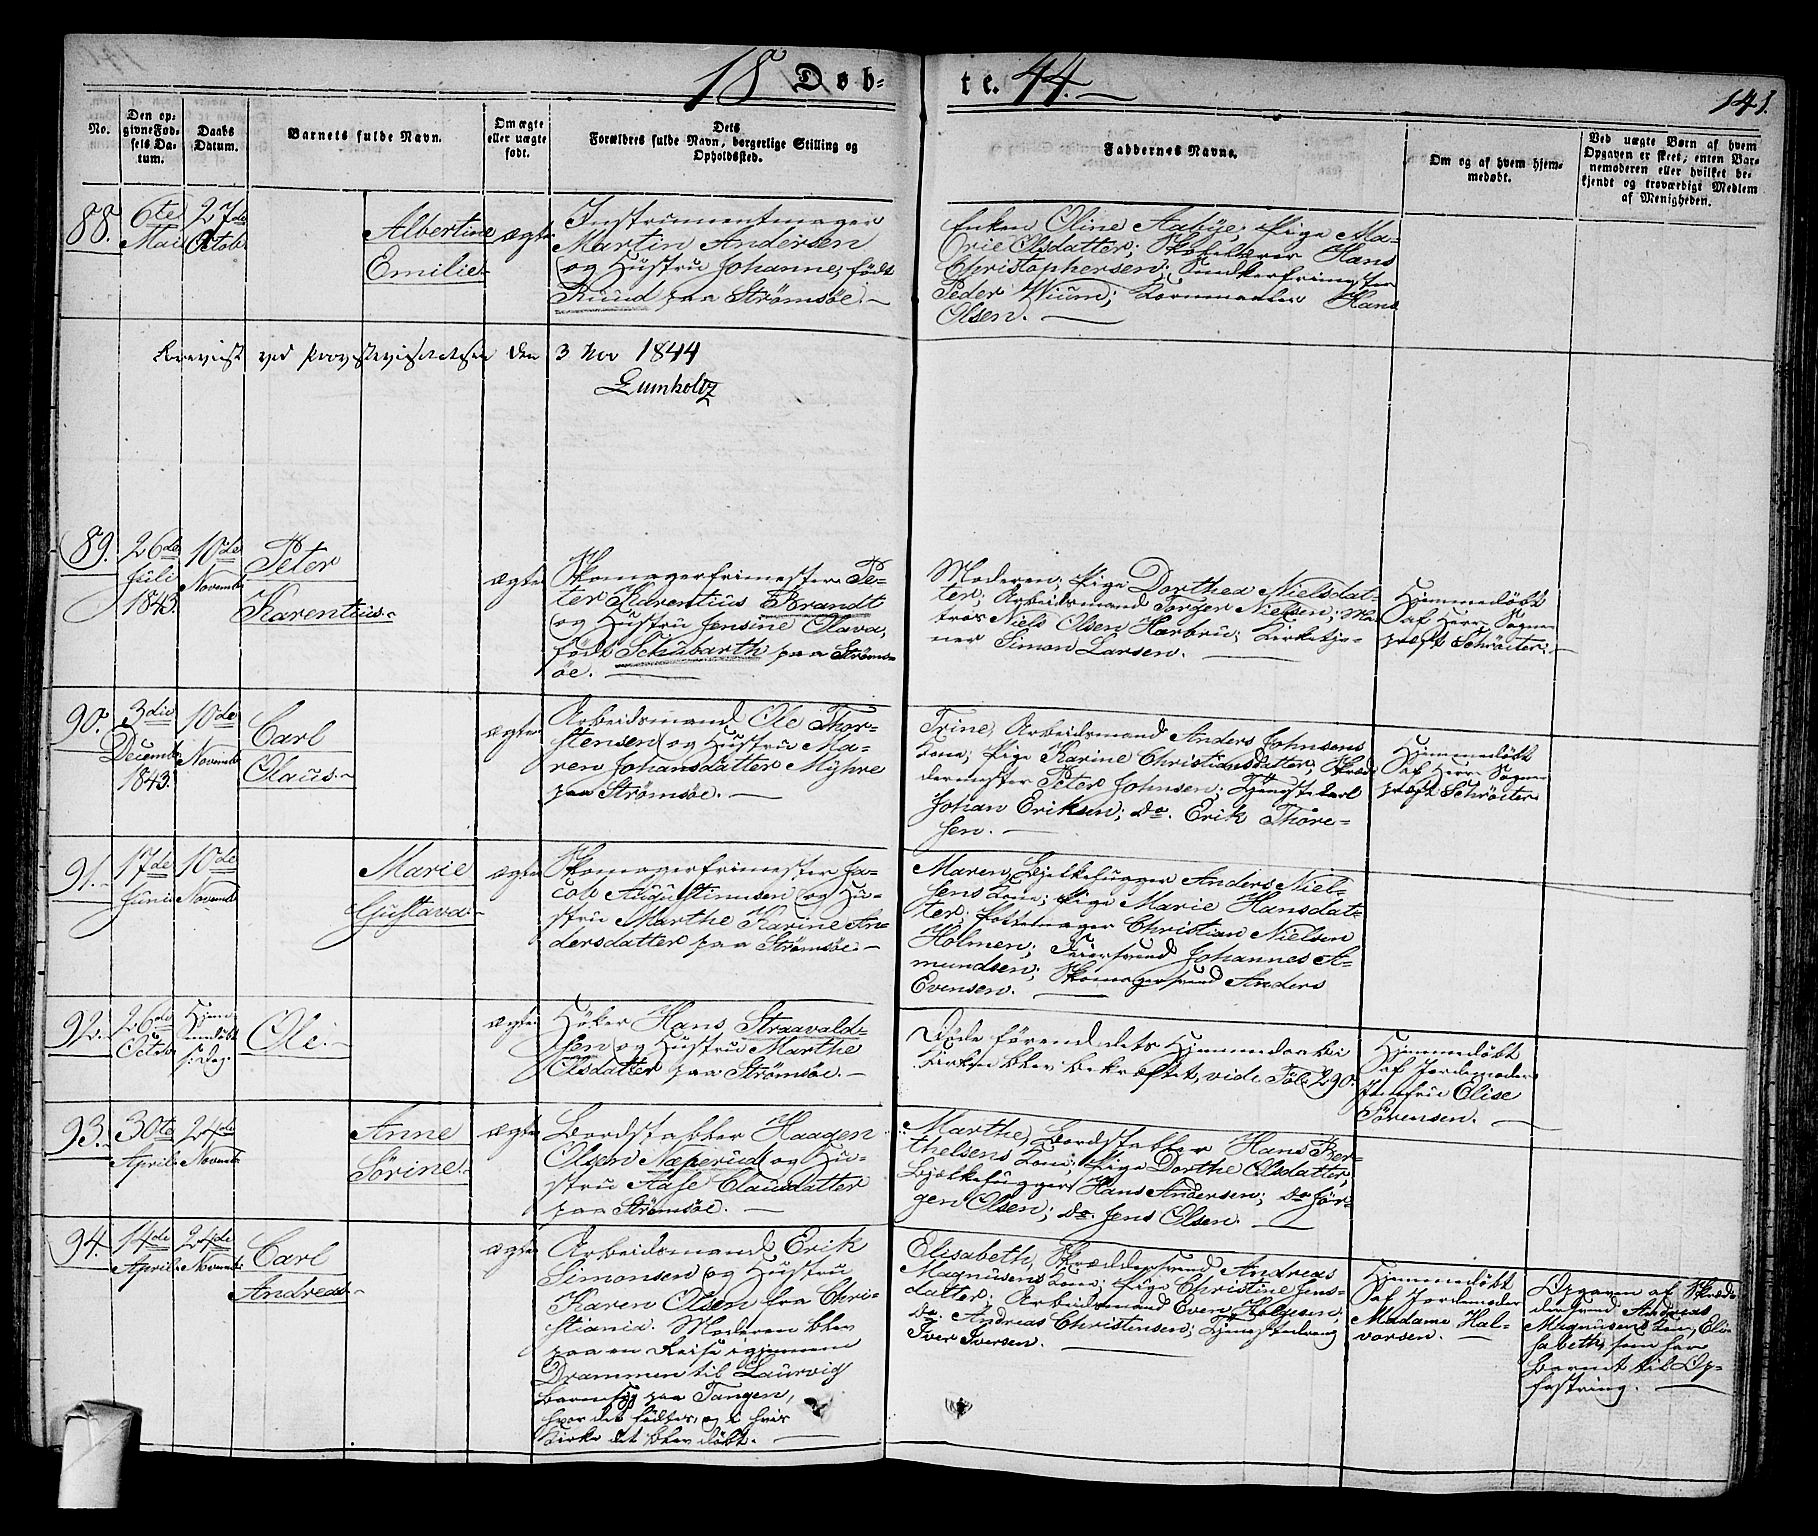 18 Døb-
te. 44.
141.
No.
Den op-
givne Fød-
sels Da-
tum.
Daabs
Datum.
Barnets fulde Navn.
Om ægte
eller uægte
født.
Dets
Forældres fulde Navn, borgerlige Stilling og
Opholdssted.
Faddernes Navne.
Om og af hvem hjem-
medøbt.
Ved uægte Børn af hvem
Opgaven er skeet; enten Bar-
nemoderen eller hvilket be-
kjendt og troværdigt Medlem
af Menigheden.
88.
6te
Mai
27de
Octob
Albertine
Emilie.
ægte
Instrumentmager
Martin Andersen
og Hustru Johanne, født
Ruud paa Strømsøe.
Enken Oline Aabye; Pige Ma-
rie Olsdatter; Skolelærer Hans
Christophersen;
Peder Wium; Hans
Olsen.
Revideret ved Provstevisitatsen den 3 Nov 1844
Lumholtz
89.
26de
Juli
1843.
10de
Novemb
Peter
Karentius.
ægte
Skomagerfrimester Pe-
ter Karentius Brandt
og Hustru Jensine Olava,
født Schubarth paa Strøms-
øe.
Moderen; Pige Dorthea Nielsdat-
ter; Arbeidsmand Torger Nielsen; Ma-
tros Niels Olsen Harbru; Kirketje-
ner Simon Larsen.
Hjemmedøbt
af Herr Sogne-
præst Schröiter.
90.
3die
Decemb
1843.
10de
Novemb
Carl
Olaus.
ægte
Arbeidsmand Ole Thor-
stensen og Hustru Ma-
ren Johansdatter Myhre
paa Strømsøe.
Trine, Arbeidsmand Anders Johnsens
Kone; Pige Karine Christiansdatter; Skræd-
dermester Peter Johnsen; Tjenestekarl
Johan Eriksen; do. Erik Thore-
sen.
Hjemmedøbt
af Herr Sogne-
præst Schröiter.
91.
17de
Juni
10de
Novemb
Marie
Gustava.
ægte
Skomagerfrimester Ja-
cob Augustinusen og Hu-
stru Marthe Karine An-
dersdatter paa Strømsøe.
Maren, Bjelkehugger Anders Niel-
sens Kone; Pige Marie Hansdat-
ter; Pottemager Christian Nielsen
Holmen; Feiersvend Johannes A-
mundsen; Skomagersvend Anders
Evensen.
92.
26de
Octb
Hjem-
medøbt
s. Dag.
Ole.
ægte
Høker Hans Straavald-
sen og Hustru Marthe
Olsdatter paa Strømsøe.
Døde førend dets Hjemmedaab i
Kirken blev bekræftet, vide Fol: 290.
Hjemmedøbt
af Jordemoder
Jomfru Elise
Sørensen.
93.
30te
April
24de
Novemb
Anne
Sörine.
ægte
Bordstabler Haagen
Olsen Næperud og Hu-
stru Aase Clausdatter
paa Strømsøe.
Marthe, Bordstabler Hans Ber-
thelsens Kone; Pige Dorthe Olsdatter;
Bjelkehugger Hans Andersen; do Jør-
gen Olsen; do. Jens Olsen.
94.
14de
April
24de
Novemb
Carl
Andreas.
ægte
Arbeidsmand Erik
Simonsen og Hustru
Karen Olsen fra Chri-
stiania. Moderen blev
paa en Reise igjennem
Drammen til Laurvig
Barnesyg paa Tangen,
hvor det fødtes, og i hvis
Kirke det blev døbt.
Elisabeth, Skræddersvend Andreas
Magnusens Kone; Pige Christine Jens-
datter; Arbeidsmand Even Helgesen;
do. Andreas Christensen; Tjenestedreng
Iver Iversen.
Hjemmedøbt
af Jordemoder
Madame Hal-
vorsen.
Opgaven af Skræd-
dersvend Andreas
Magnusens Kone, Eli-
sabeth, som har
Barnet til Op-
fostring.